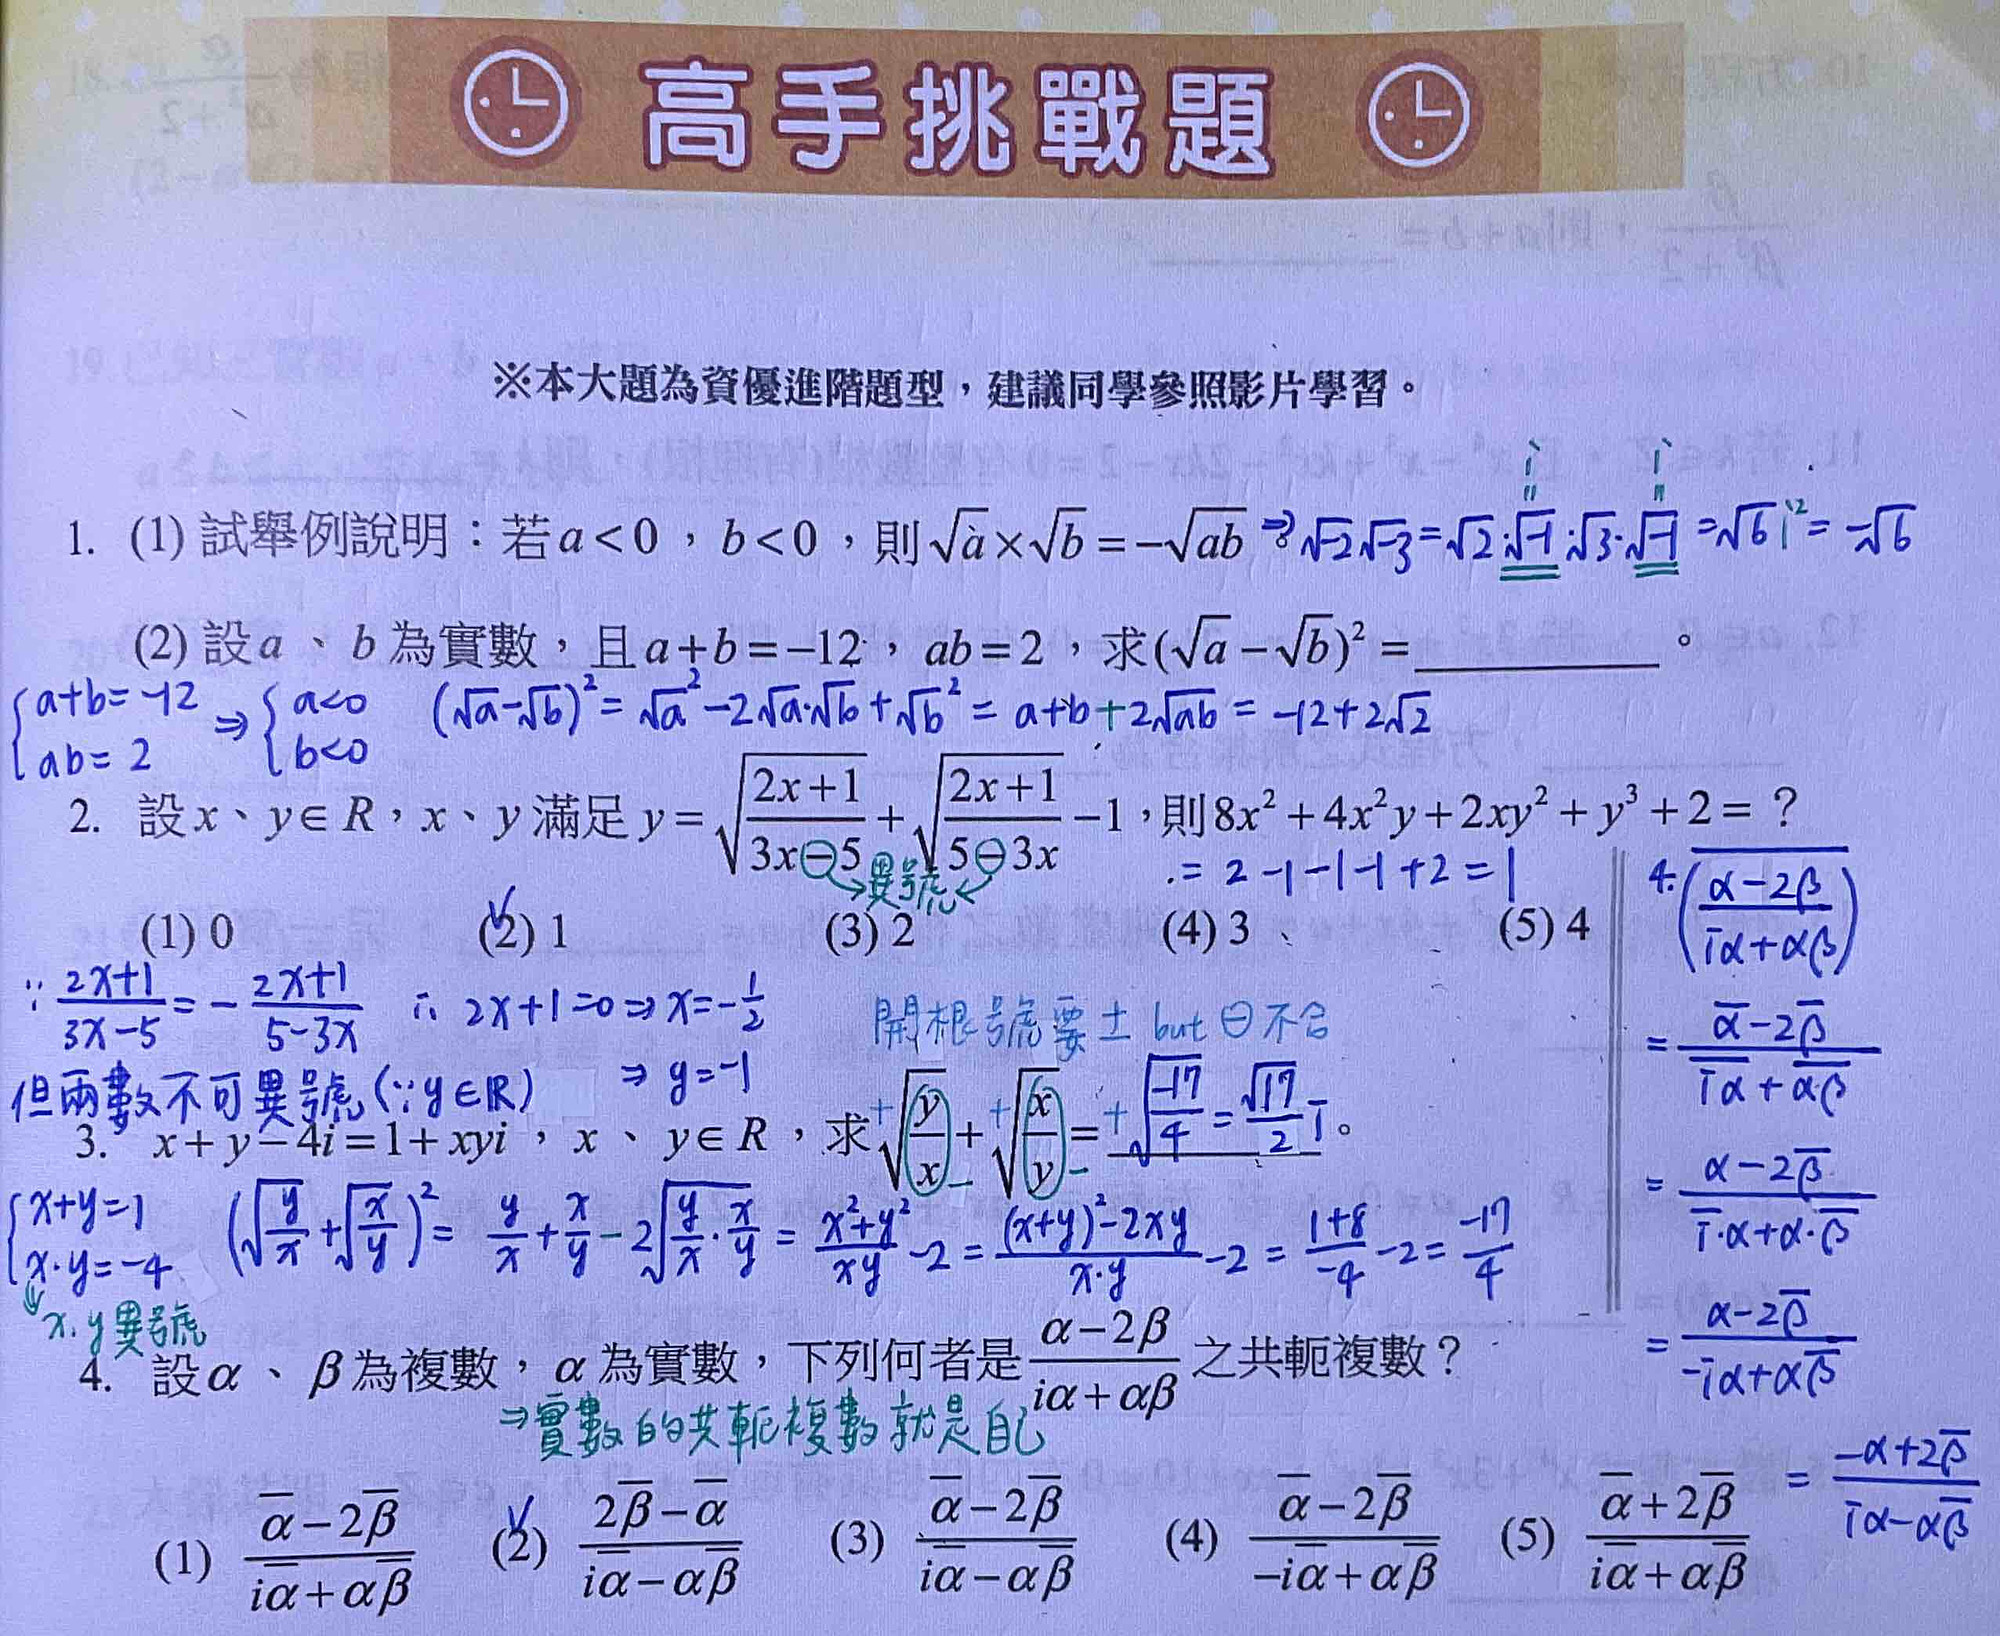 高手挑戰題
※本大題為資優進階題型，建議同學參照影片學習。
i i
1. (1) 試舉例說明：若a<0，b<0，則√a×√b=−√ab ⇒ √-2√-3=√2·√-1·√3·√-1=√6i²=-√6
(2) 設a、b為實數，且a+b=−12，ab=2，求(√a−√b)²=________。
{a+b=-12 ⇒ {a<0 (√a-√b)²=√a²-2√a·√b+√b²=a+b+2√ab=-12+2√2
{ab=2 {b<0
2. 設x、y∈R，x、y滿足y=√((2x+1)/(3x−5))+√((2x+1)/(5−3x))−1，則8x²+4x²y+2xy²+y³+2=？
異號
=2-1-1-1+2=1
(1) 0 (2) 1 (3) 2 (4) 3 (5) 4
∵ (2x+1)/(3x-5)=-(2x+1)/(5-3x) ∴ 2x+1=0⇒x=-1/2
開根號要± but ⊖不合
但兩數不可異號(∵y∈R) ⇒ y=-1
3. x+y−4i=1+xyi，x、y∈R，求√(y/x)+√(x/y)=+√(-17/4)=(√17/2)i。
{x+y=1 (√(y/x)+√(x/y))²=y/x+x/y-2√(y/x·x/y)=(x²+y²)/xy-2=((x+y)²-2xy)/(x·y)-2=(1+8)/-4-2=-17/4
{x·y=-4
x,y異號
4. 設α、β為複數，α為實數，下列何者是(α−2β)/(iα+αβ)之共軛複數？
⇒實數的共軛複數就是自己
(1) (α̅−2β̅)/(iα̅+αβ̅) (2) (2β̅−α̅)/(iα̅−αβ̅) (3) (α̅−2β̅)/(iα̅−αβ̅) (4) (α̅−2β̅)/(−iα̅+αβ̅) (5) (α̅+2β̅)/(iα̅+αβ̅)
4. \overline{((α-2β)/(iα+αβ))}
=(α̅-2β̅)/(\overline{iα}+\overline{αβ})
=(α-2β̅)/(i̅·α+α·β̅)
=(α-2β̅)/(-iα+αβ̅)
=(-α+2β̅)/(iα-αβ̅)